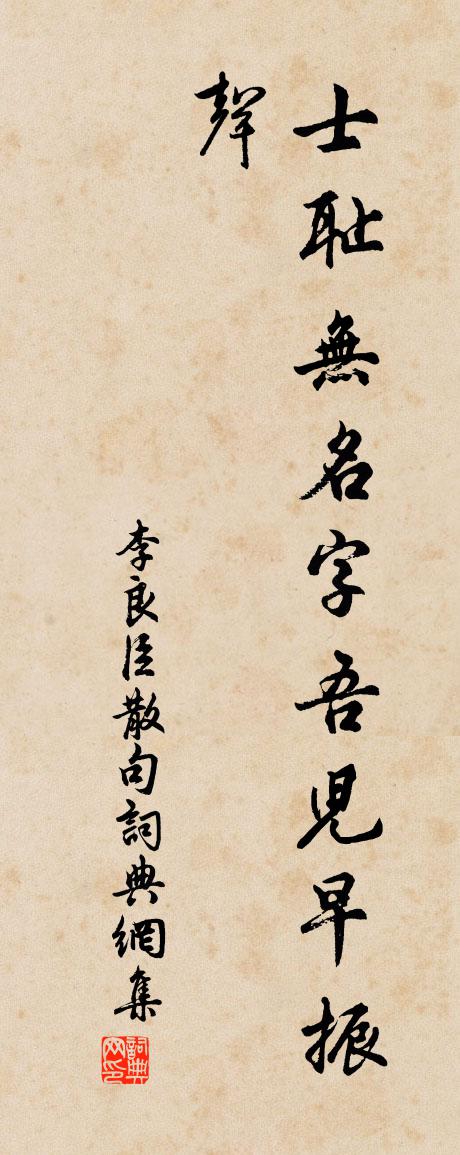 士耻無名字吾児早振
聲
李良臣散句詞典網集
詞典网印